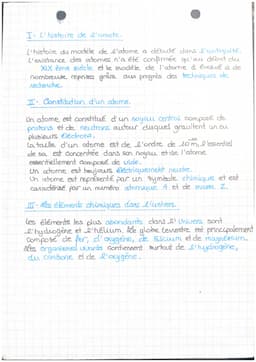 I - L'histoire de l'atome.
L'histoire du modèle de l'atome a débuté dans l'antiquité.
L'existence des atomes n'a été confirmée qu'au début du
XIX ème siècle et le modèle de l'atome à évolué à de
nombreuse reprises grâce aux progrès des techniques de
recherche.
II - Constitution d'un atome.
Un atome est constitué d'un noyau central composé de
protons et de neutrons autour duquel gravitent un ou
plusieurs électrons.
La taille d'un atome est de l'ordre de 10 m, l'essentiel
de sa est concentrée dans son noyau et de l'atome
essentiellement composé de vide.
Un atome est toujours électriquement neutre.
Un atome est représenté par un symbole chimique et est
caractérisé par un numéro atomique et de masse
III - Les éléments chimiques dans l'univers.
Les éléments les plus abondants dans l'Univers sont
l'hydrogène et l'hélium. Le globe terrestre est principalement
composé de fer, d'oxygène, de silicium et de magnésium,
les organismes vivants contiennent surtout de l'hydrogène,
du carbone et de l'oxygène.